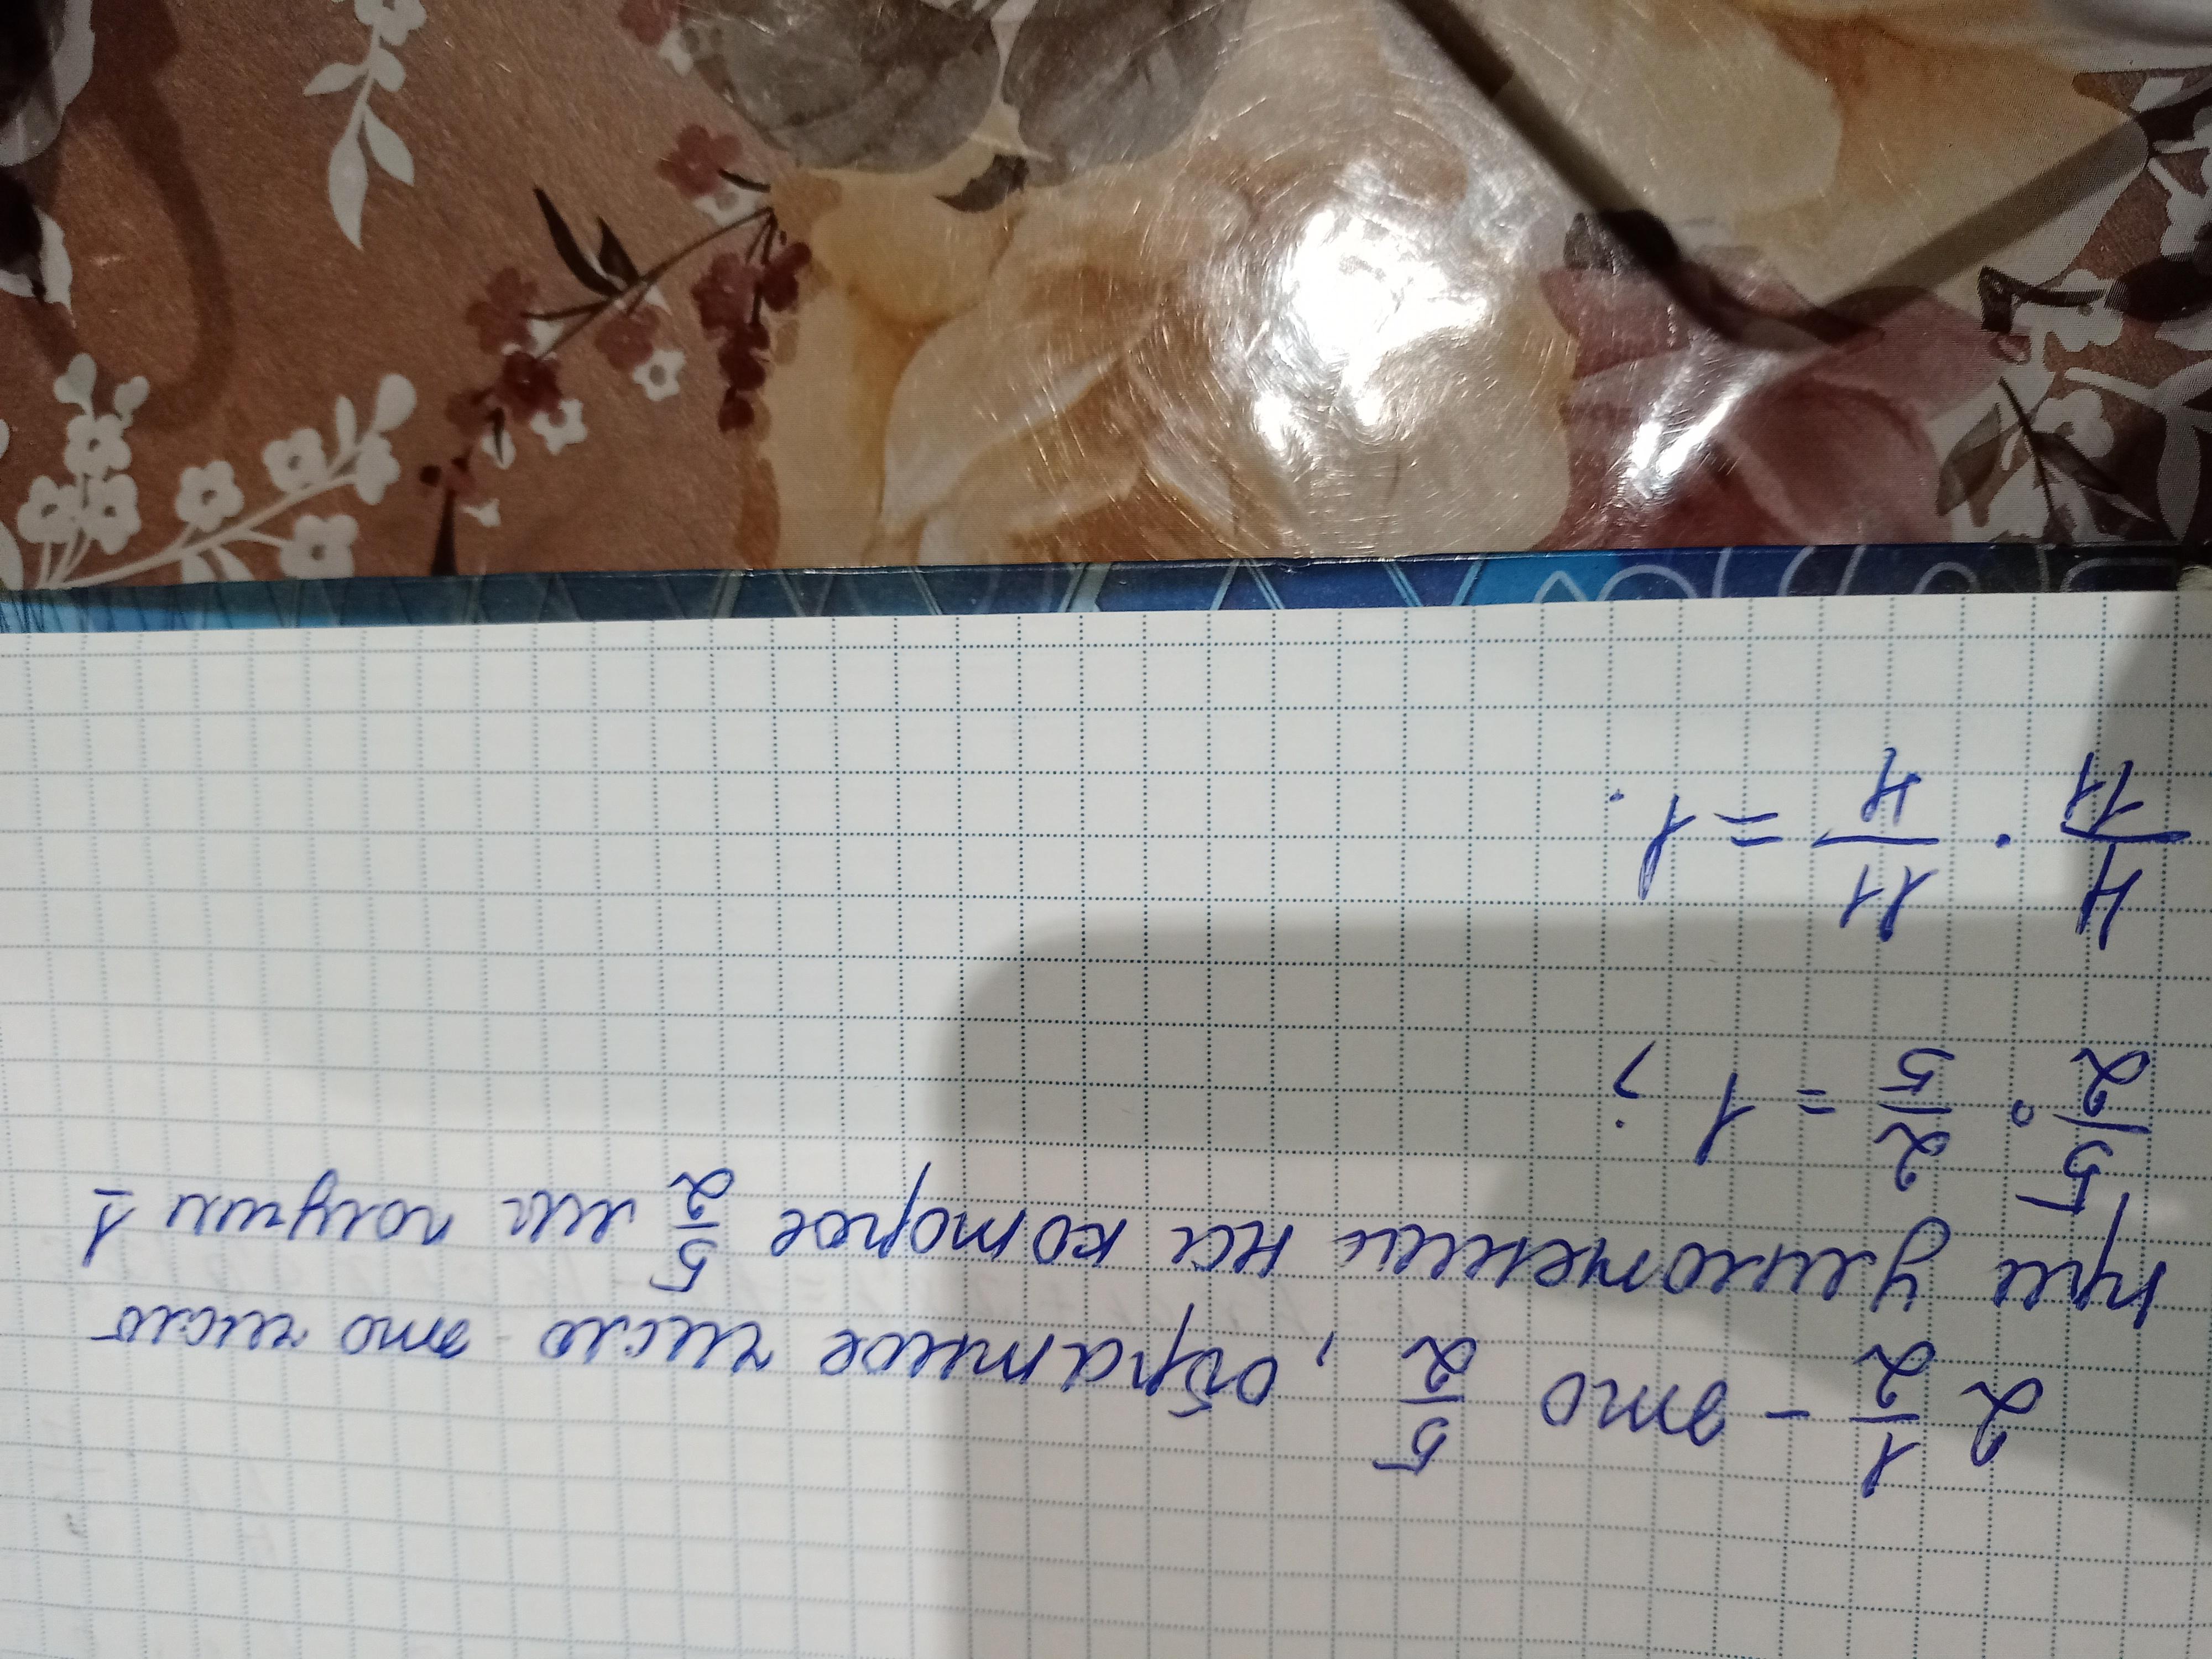 2 1/2 - это 5/2, обратное число это число
при умножении на которое 5/2 мы получим 1
5/2 · 2/5 = 1;
4/11 · 11/4 = 1.